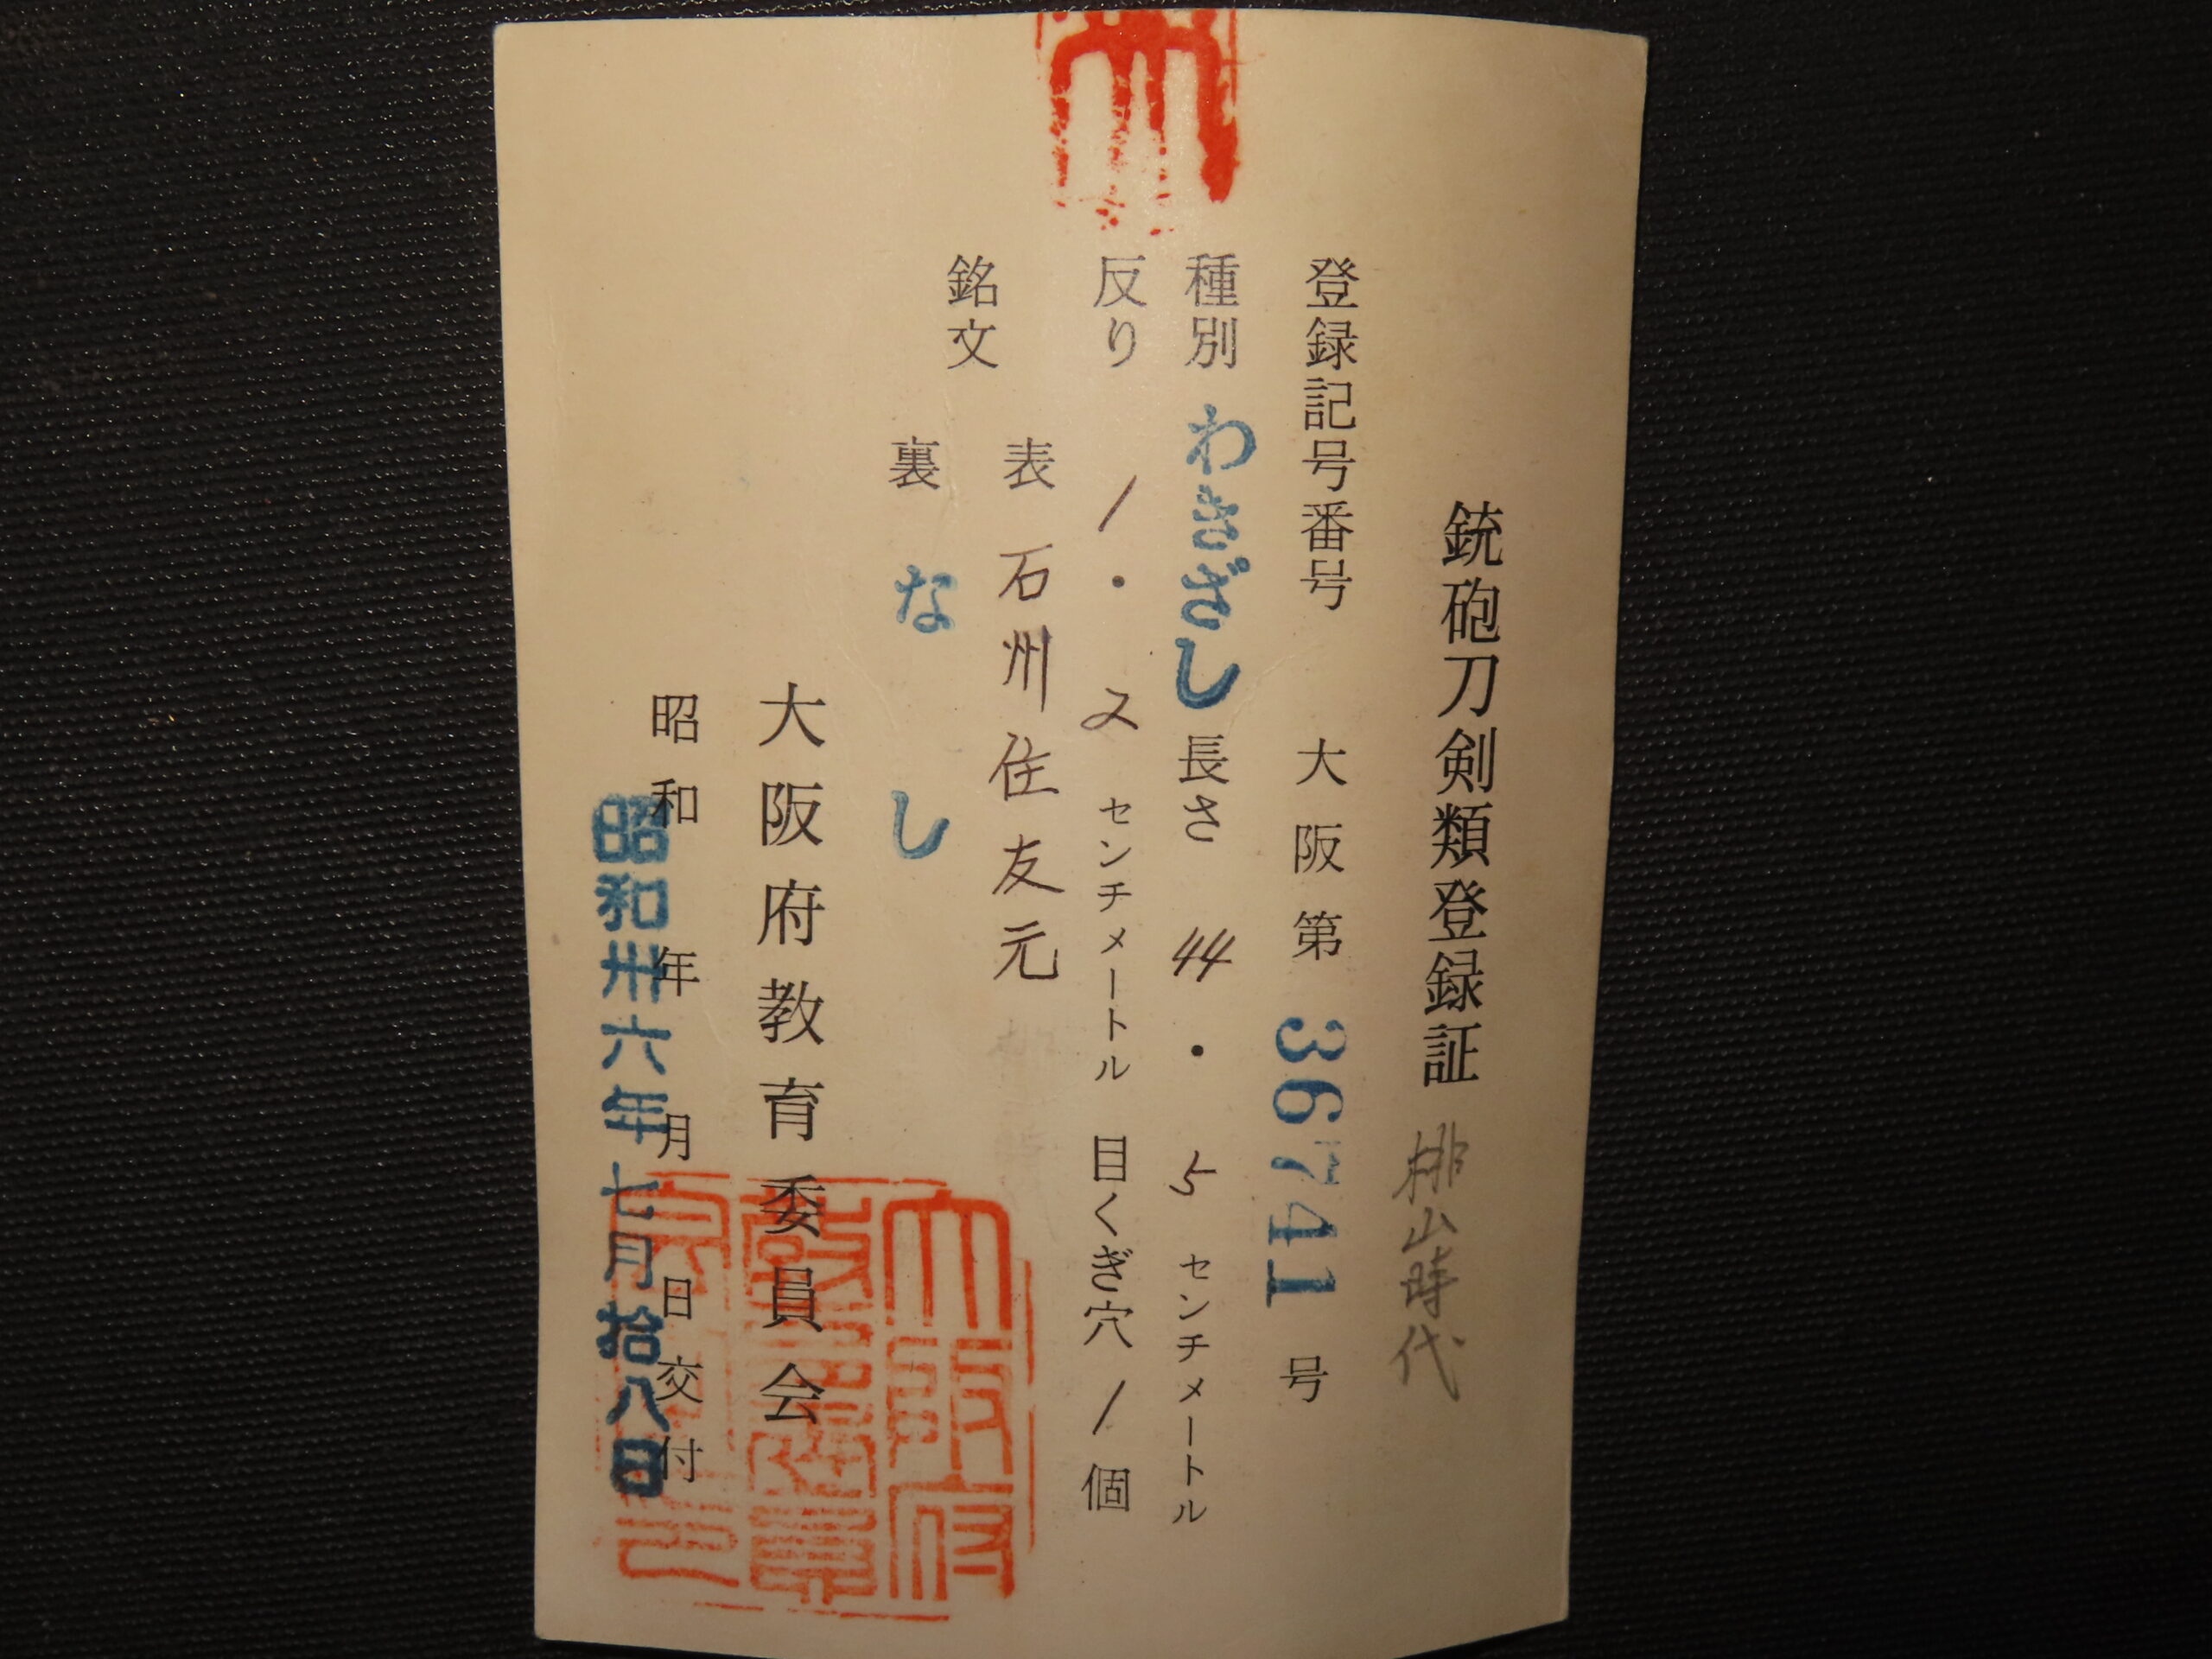 銃砲刀剣類登録証 桃山時代
登録記号番号 大阪第 36741 号
種別 わきざし 長さ 44.5 センチメートル
反り 1.2 センチメートル 目くぎ穴 1 個
銘文
表 石州住友元
裏 なし
大阪府教育委員会
昭和 年 月 日交付
昭和卅六年七月拾八日
大阪府
教育委員
会之印